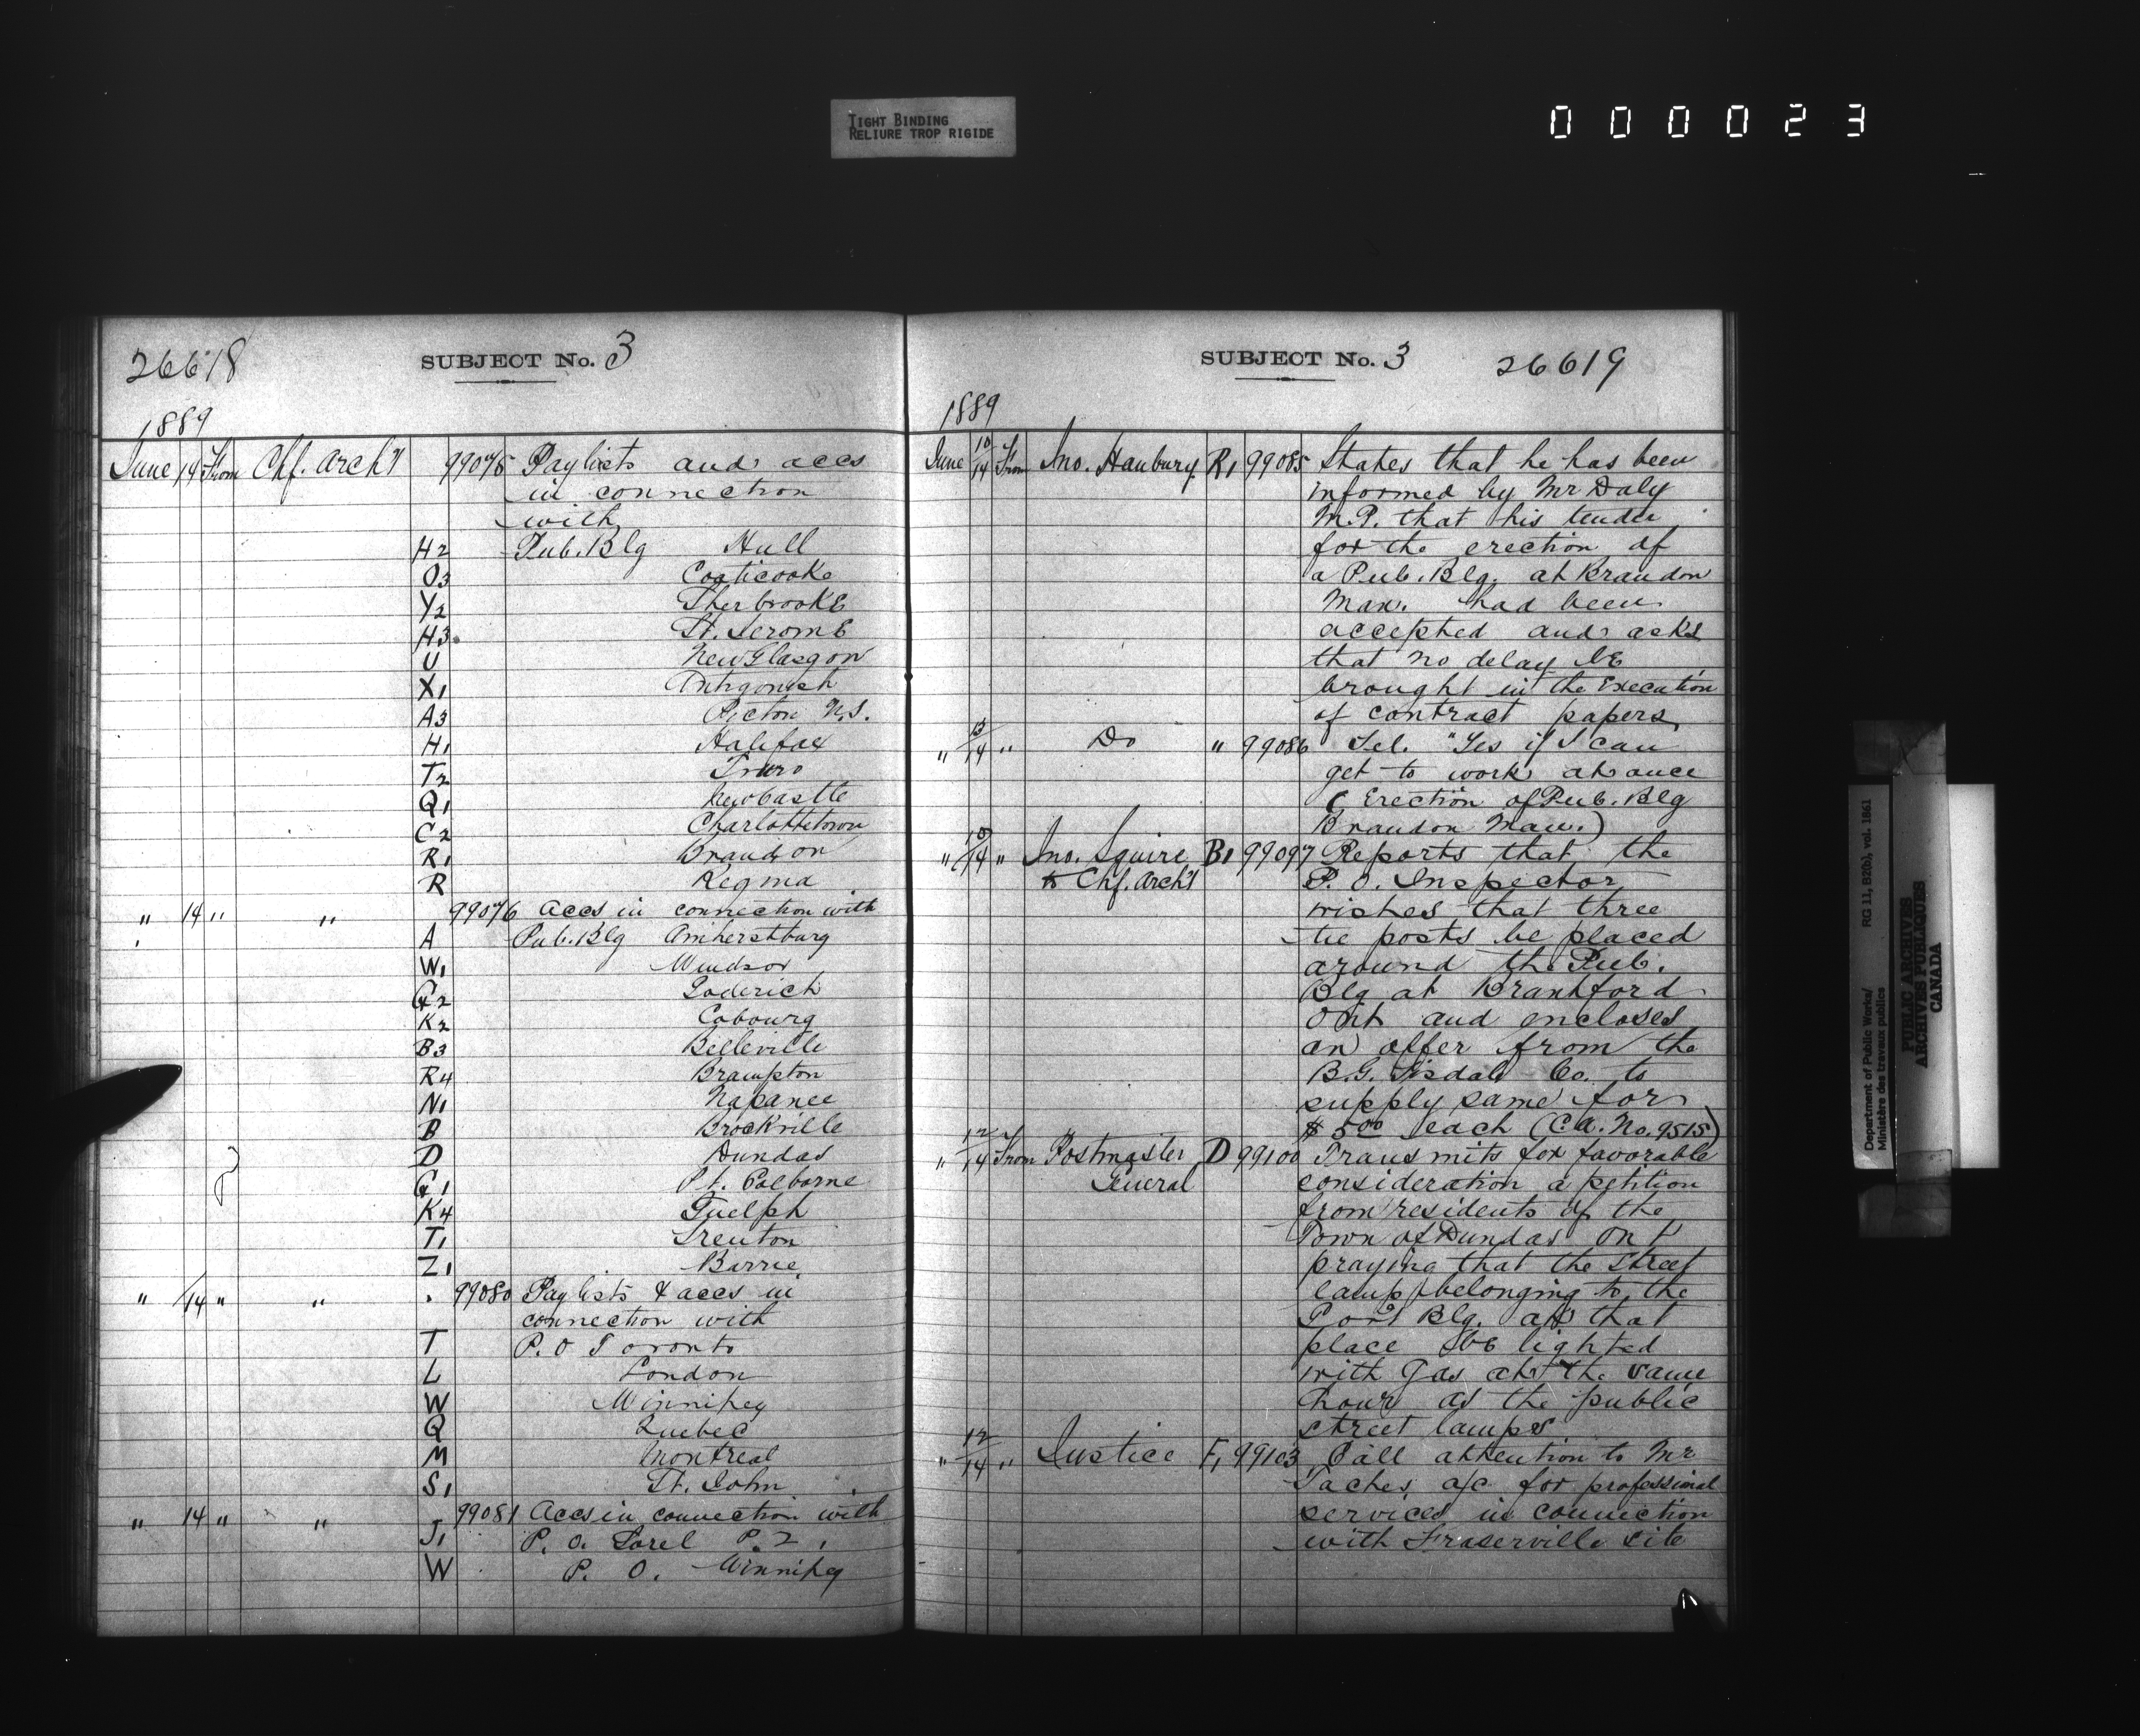 TIGHT BINDING
RELIURE TROP RIGIDE
000023
26618 SUBJECT No. 3
1889
June 14 From Chf. Arch't 99075 Paylists and accs
in connection
with
H2 Pub. Blg Hull
O3 Coaticooke
Y2 Sherbrooke
H3 St. Jerome
U New Glasgow
X1 Antigonish
A3 Pictou N.S.
H1 Halifax
T2 Truro
Q1 Newcastle
C2 Charlottetown
R1 Brandon
R Regina
" 14 " " 99076 Accs in connection with
A Pub. Blg Amherstburg
W1 Windsor
G2 Goderich
K2 Cobourg
B3 Belleville
R4 Brampton
N1 Napanee
B Brockville
D Dundas
G1 Pt. Colborne
K4 Guelph
T1 Trenton
Z1 Barrie
" 14 " " 99080 Paylists & accs in
connection with
T P. O Toronto
L London
W Winnipeg
Q Quebec
M Montreal
S1 St. John
" 14 " " 99081 Accs in connection with
J1 P. O. Sorel P. 2,
W P. O. Winnipeg
SUBJECT No. 3 26619
1889
June 10/14 From Jno. Hanbury R1 99085 States that he has been
informed by Mr Daly
M.P. that his tender
for the erection of
a Pub. Blg. at Brandon
Man. had been
accepted and asks
that no delay be
brought in the Execution
of contract papers
" 13/14 " Do " 99086 Tel. "Yes if I can
get to work at once
( Erection of Pub. Blg
Brandon Man.)
" 10/14 " Jno. Squire B1 99097 Reports that the
to Chf. Arch't P. O. Inspector
wishes that three
tie posts be placed
around the Pub.
Blg at Brantford
Ont and encloses
an offer from the
B.G. Tisdale Co. to
supply same for
$5.00 each (C.A. No. 9515)
" 12/14 From Postmaster D 99100 Transmits for favorable
General consideration a petition
from residents of the
Town of Dundas Ont
praying that the Street
lamp belonging to the
Post Blg. at that
place be lighted
with Gas at the same
hour as the public
street lamps
" 12/14 " Justice F1 99103 Call attention to Mr
Taches a/c for professional
services in connection
with Fraserville site
Department of Public Works/ RG 11, B2(b), vol. 1861
Ministère des travaux publics
PUBLIC ARCHIVES
ARCHIVES PUBLIQUES
CANADA